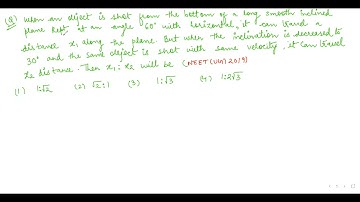 (Q) When an object is shot from the bottom of a long smooth inclined
plane kept at an angle 60° with horizontal, it can travel a
distance x₁ along the plane. But when the inclination is decreased to
30° and the same object is shot with same velocity, it can travel
x₂ distance. Then x₁ : x₂ will be (NEET (UG) 2019)
(1) 1:√2 (2) √2:1 (3) 1:√3 (4) 1:2√3